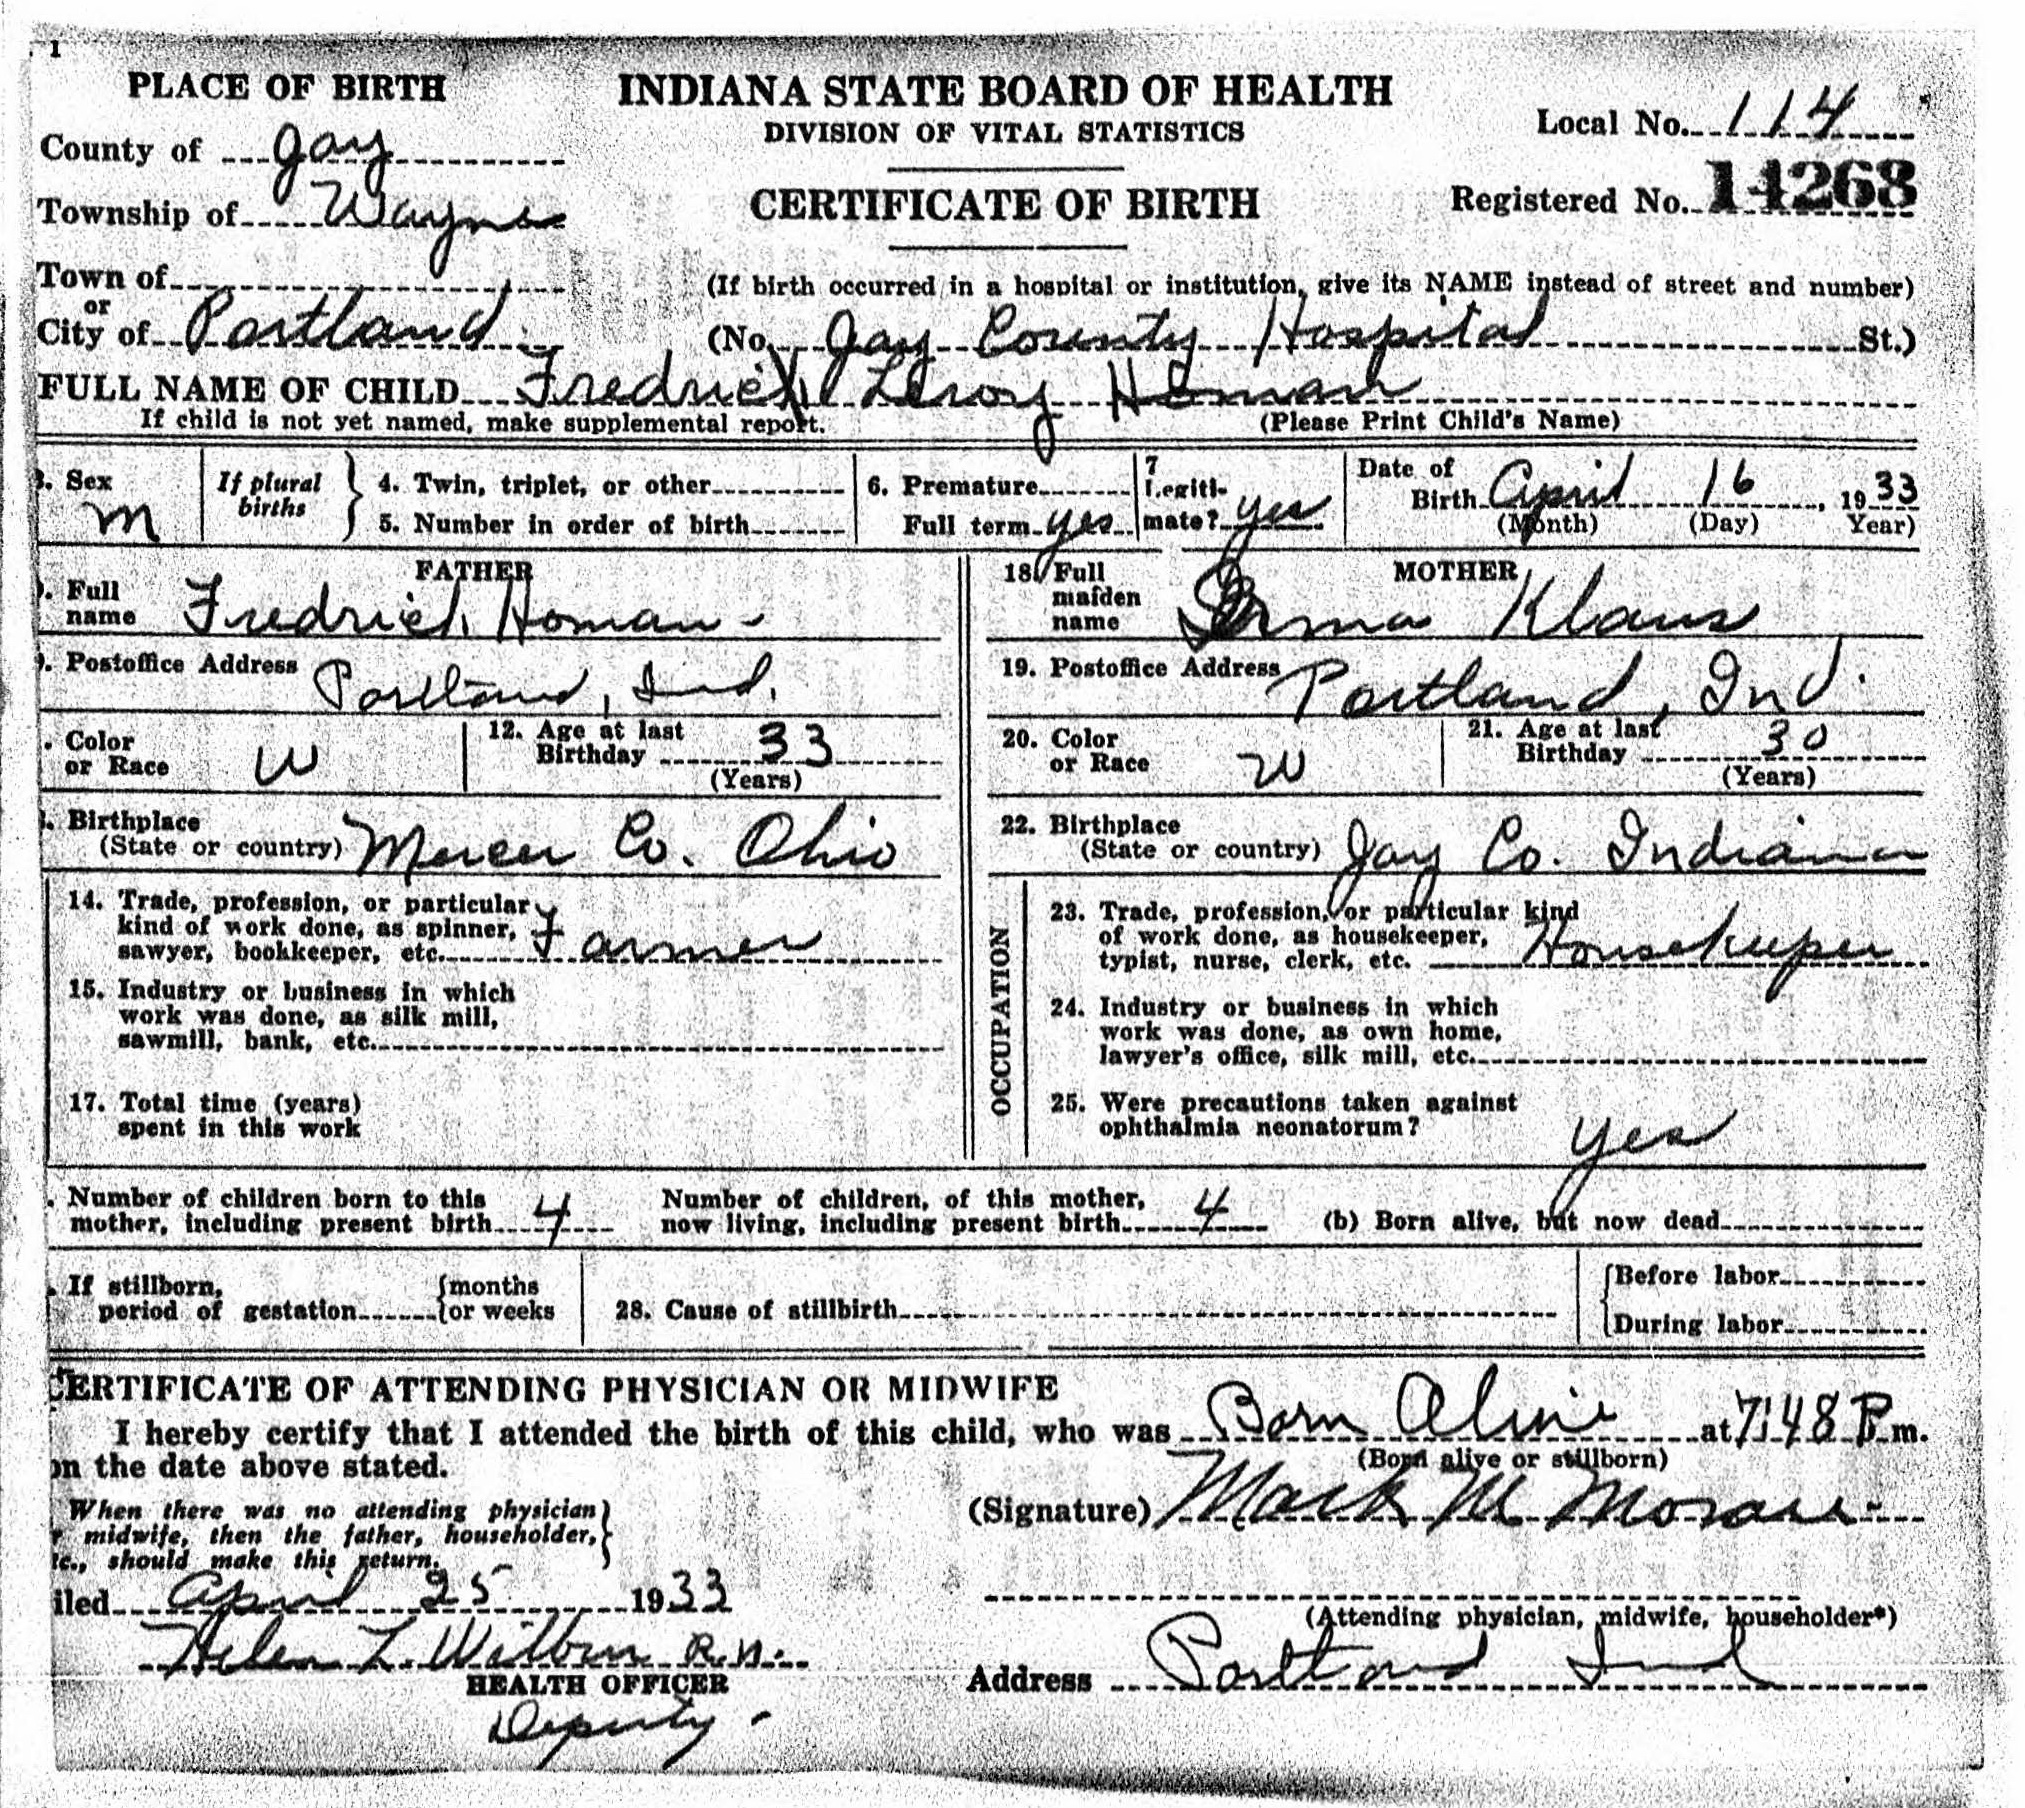 1
PLACE OF BIRTH
County of Jay
Township of Wayne
Town of
or
City of Portland
INDIANA STATE BOARD OF HEALTH
DIVISION OF VITAL STATISTICS
CERTIFICATE OF BIRTH
Local No. 114
Registered No. 14268
(If birth occurred in a hospital or institution, give its NAME instead of street and number)
(No. Jay County Hospital St.)
FULL NAME OF CHILD Fredrick Leroy Homan
If child is not yet named, make supplemental report. (Please Print Child's Name)
3. Sex M
If plural births
4. Twin, triplet, or other
5. Number in order of birth
6. Premature
Full term yes
7 Legiti-
mate? yes
Date of
Birth April 16, 1933
(Month) (Day) Year)
FATHER
. Full
name Fredrick Homan
. Postoffice Address Portland, Ind.
. Color
or Race W
12. Age at last
Birthday 33
(Years)
. Birthplace
(State or country) Mercer Co. Ohio
14. Trade, profession, or particular
kind of work done, as spinner,
sawyer, bookkeeper, etc. Farmer
15. Industry or business in which
work was done, as silk mill,
sawmill, bank, etc.
17. Total time (years)
spent in this work
MOTHER
18. Full
maiden
name Irma Klaus
19. Postoffice Address Portland, Ind.
20. Color
or Race W
21. Age at last
Birthday 30
(Years)
22. Birthplace
(State or country) Jay Co. Indiana
OCCUPATION
23. Trade, profession, or particular kind
of work done, as housekeeper,
typist, nurse, clerk, etc. Housekeeper
24. Industry or business in which
work was done, as own home,
lawyer's office, silk mill, etc.
25. Were precautions taken against
ophthalmia neonatorum? yes
. Number of children born to this
mother, including present birth 4
Number of children, of this mother,
now living, including present birth 4
(b) Born alive, but now dead
. If stillborn,
period of gestation {months
or weeks
28. Cause of stillbirth
Before labor
During labor
CERTIFICATE OF ATTENDING PHYSICIAN OR MIDWIFE
I hereby certify that I attended the birth of this child, who was Born Alive at 7:48 P.m.
(Born alive or stillborn)
on the date above stated.
When there was no attending physician
r midwife, then the father, householder,
tc., should make this return.
(Signature) Mark M Moran
iled April 25 1933
(Attending physician, midwife, householder*)
Helen L. Wilbur R.N.
HEALTH OFFICER
Deputy
Address Portland Ind